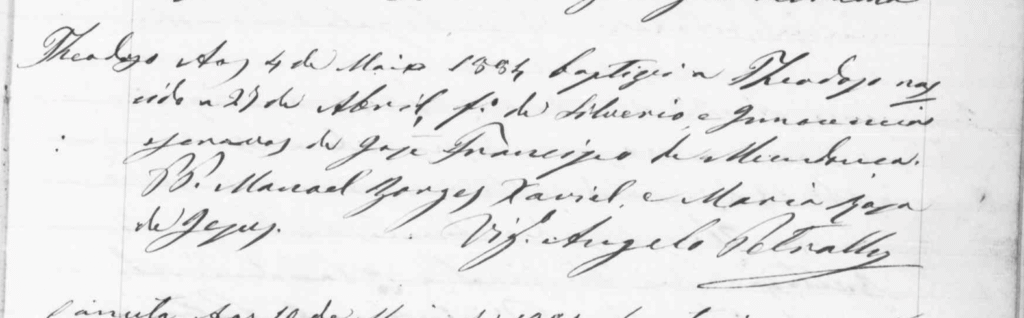 Theodozo Aos 4 de Maio 1884 baptizei a Theodozo nas
cido a 27 de Abril, f.º de Silverio, e Innocencia
escravos de José Francisco de Mendonça.
PP. Manoel Borges Xavier, e Maria Roza
de Jesus. Vig.º Angelo Petrally
Aos 10 de